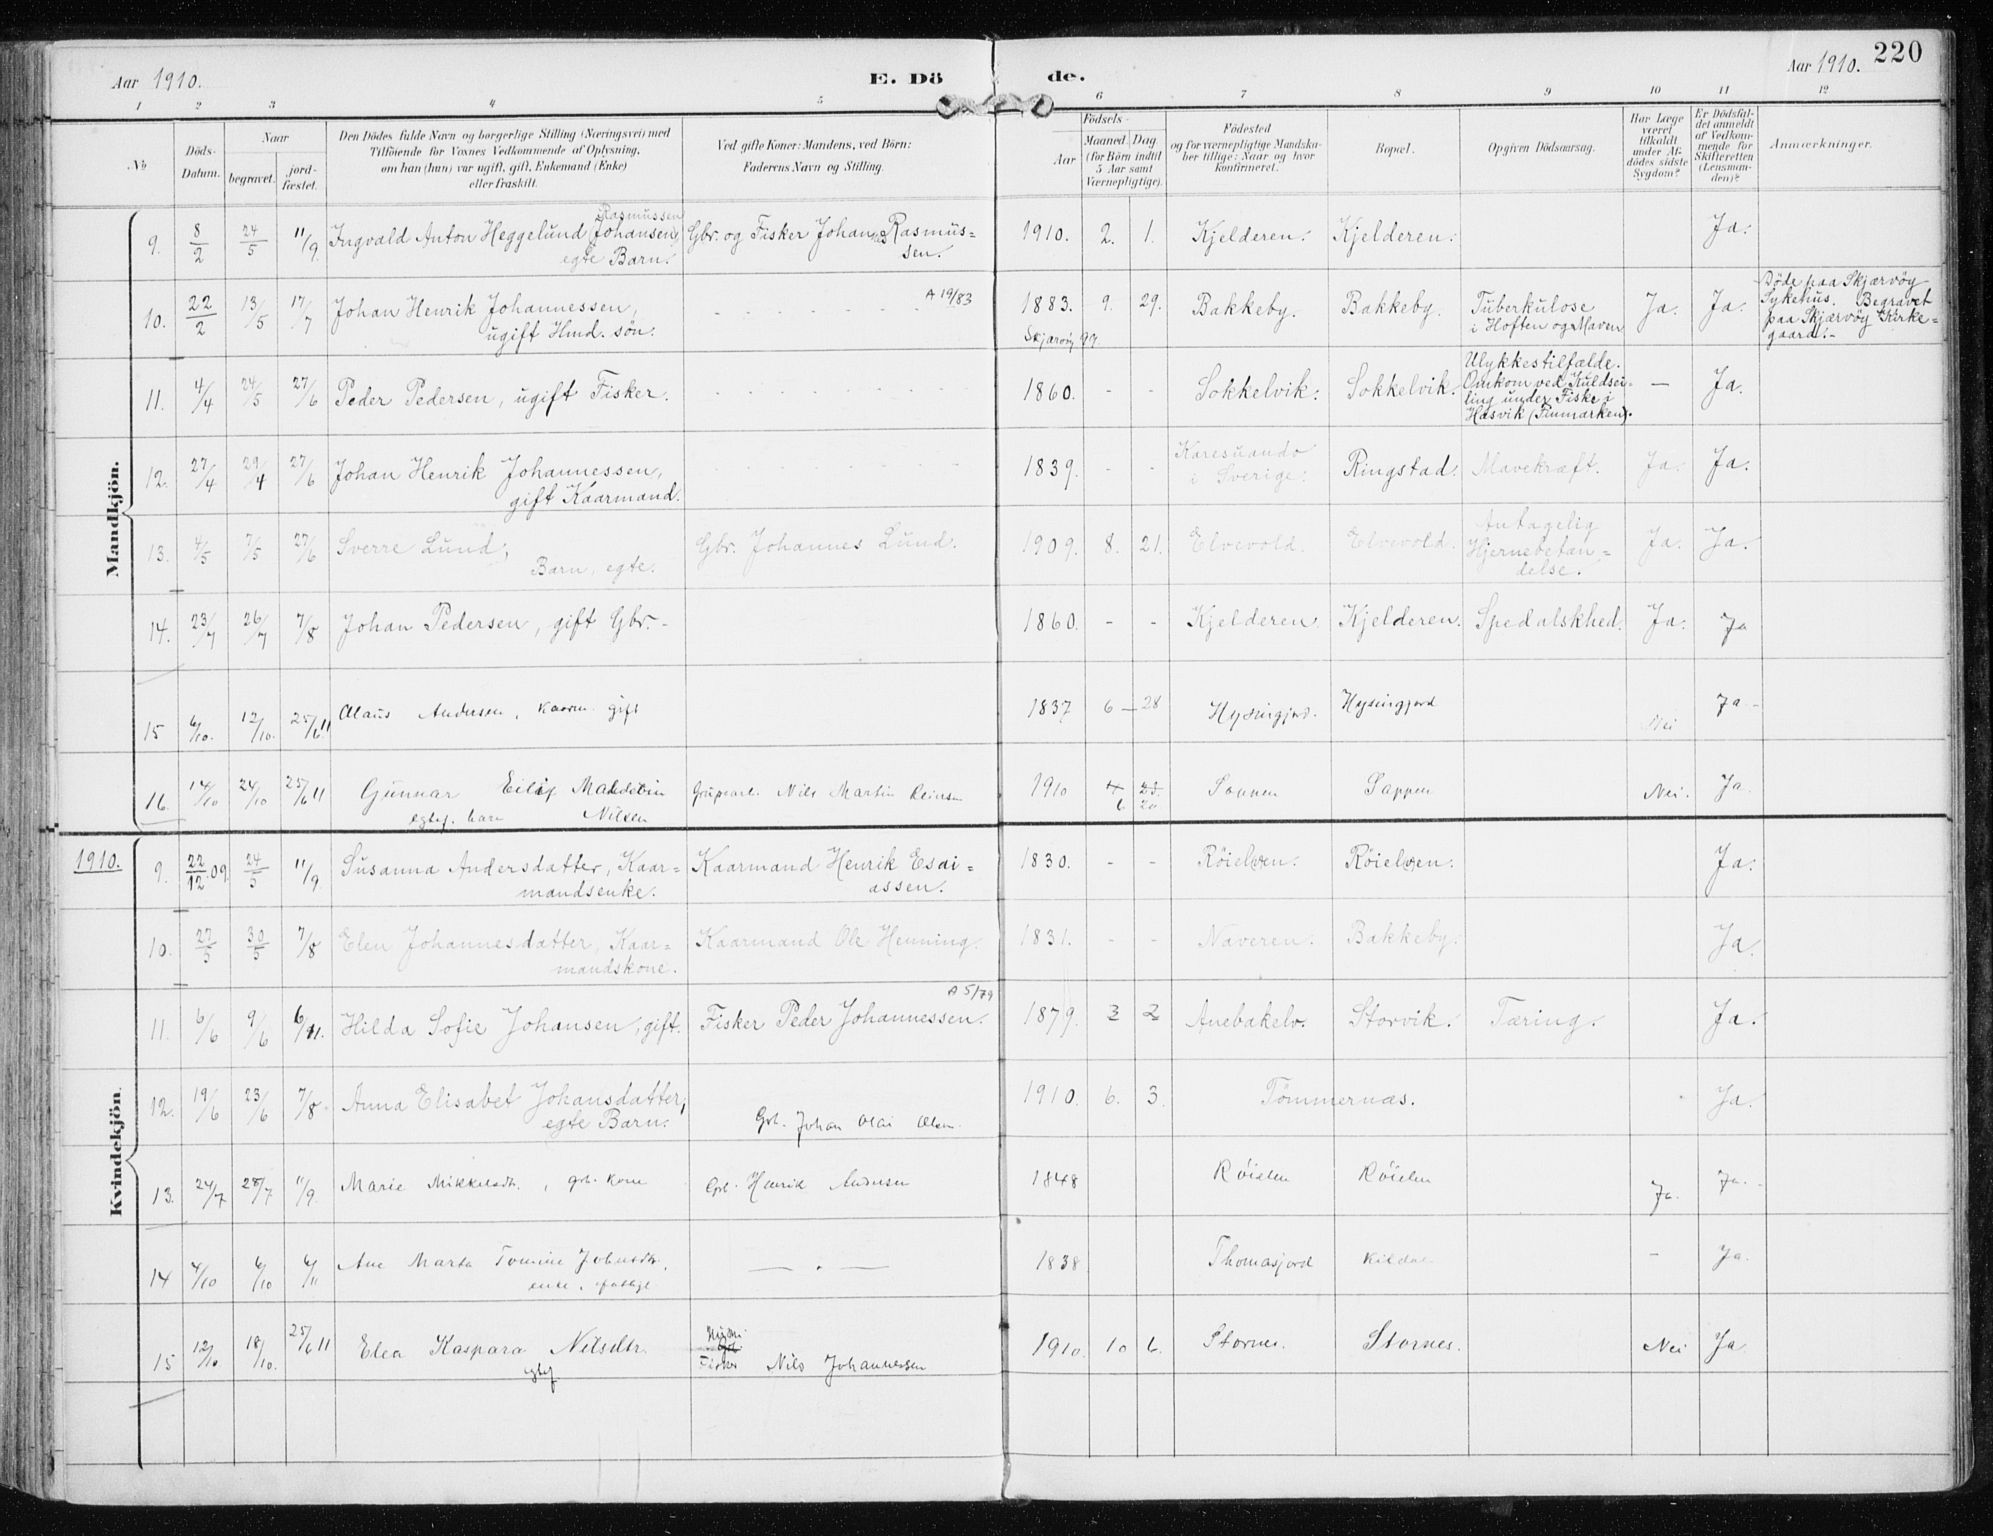 Aar 1910. E. Dö de. Aar 1910. 220
1 2 3 4 5 6 7 8 9 10 11 12
No
Döds-Datum.
Naar begravet. jordfæstet.
Den Dödes fulde Navn og borgerlige Stilling (Næringsvei) med
Tilföiende for Voxnes Vedkommende af Oplysning,
om han (hun) var ugift, gift, Enkemand (Enke)
eller fraskilt.
Ved gifte Koner: Mandens, ved Börn:
Faderens Navn og Stilling.
Födsels-
Aar Maaned. Dag
(for Börn indtil
5 Aar samt
Værnepligtige).
Födested
og for værnepligtige Mandskaber tillige: Naar og hvor
konfirmeret.
Bopæl.
Opgiven Dödsaarsag.
Har Læge
været
tilkaldt
under Afdödes sidste
Sygdom?
Er Dödsfaldet anmeldt
af Vedkommende for
Skifteretten
(Lensmanden)?
Anmærkninger.
Mandkjön.
Rasmussen
9. 8/2 24/5 11/9 Ingvald Anton Heggelund (Johansen), Gbr. og Fisker Johan Rasmus= 1910. 2. 1. Kjelderen. Kjelderen. Ja.
egte Barn. sen.
A 19/83
10. 22/2 13/5 17/7 Johan Henrik Johannessen, 1883. 9. 29. Bakkeby. Bakkeby. Tuberkulose Ja. Ja. Döde paa Skjærvöy
ugift Hmd. sön. Skjærvöy 99 i Hoften og Maven Sykehus. Begravet
paa Skjærvöy Kirke=
gaard.-
11. 4/4 24/5 27/6 Peder Pedersen, ugift Fisker. 1860. - - Sokkelvik. Sokkelvik. Ulykkestilfælde. — Ja.
Omkom ved Kuldsei=
ling under Fiske i
Hasvik (Finmarken).
12. 27/4 29/4 27/6 Johan Henrik Johannessen, 1839. - - Karesuando Ringstad. Mavekræft. Ja. Ja.
gift Kaarmand. i Sverige.
13. 4/5 7/5 27/6 Sverre Lund, Gbr. Johannes Lund. 1909. 8. 21. Elvevold. Elvevold. Antagelig Ja. Ja.
Barn, egte. Hjernebetæn=
delse.
14. 23/7 26/7 7/8 Johan Pedersen, gift Gbr.- 1860. - - Kjelderen. Kjelderen. Spedalskhed. Ja. Ja
15 6/10. 12/10. 25/6 11 Claus Andersen, kaarm. gift 1837 6 — 28 Hysingjord. Hysingjord Nei Ja-
16. 14/10 24/10 25/6 11 Gunnar Eilif Nils Martin 1910 6 20 Sappen Sappen Nei. Ja.
Nilsen
Kvindekjön.
1910. 9. 22/12 09 24/5 11/9 Susanna Andersdatter, Kaar= Kaarmand Henrik Esai= 1830. - - Röielven. Röielven. Ja.
mandsenke. assen.
10. 27/5 30/5 7/8 Elen Johannesdatter, Kaar= Kaarmand Ole Henning. 1831. - - Naveren. Bakkeby. Ja.
mandskone.
A 5/79
11. 6/6 9/6 6/11. Hilda Sofie Johansen, gift. Fisker Peder Johannessen. 1879. 3 2 Anebakelv. Storvik. Tæring. Ja.
12. 19/6 23/6 7/8. Anna Elisabet Johansdatter, 1910. 6. 3. Tömmernæs. Ja.
egte Barn. Gbr. Johan Olai Olsen.
13. 24/7 28/7 11/9. Marie Mikkelsdtr., gbr. kone Gbr. Henrik Andersen 1848 Röielen Röielen Ja. Ja.-
14 4/10 6/10 6/11 Ane Marta Tomine Johnsdtr. — . — 1838 Thomasjord Kildal - Ja.
enke,
15 12/10 18/10. 25/6 11 Elea Kaspara Nilsdtr. Fisker Nils Johannessen 1910. 10 6. Stornes. Stornes. Nei Ja